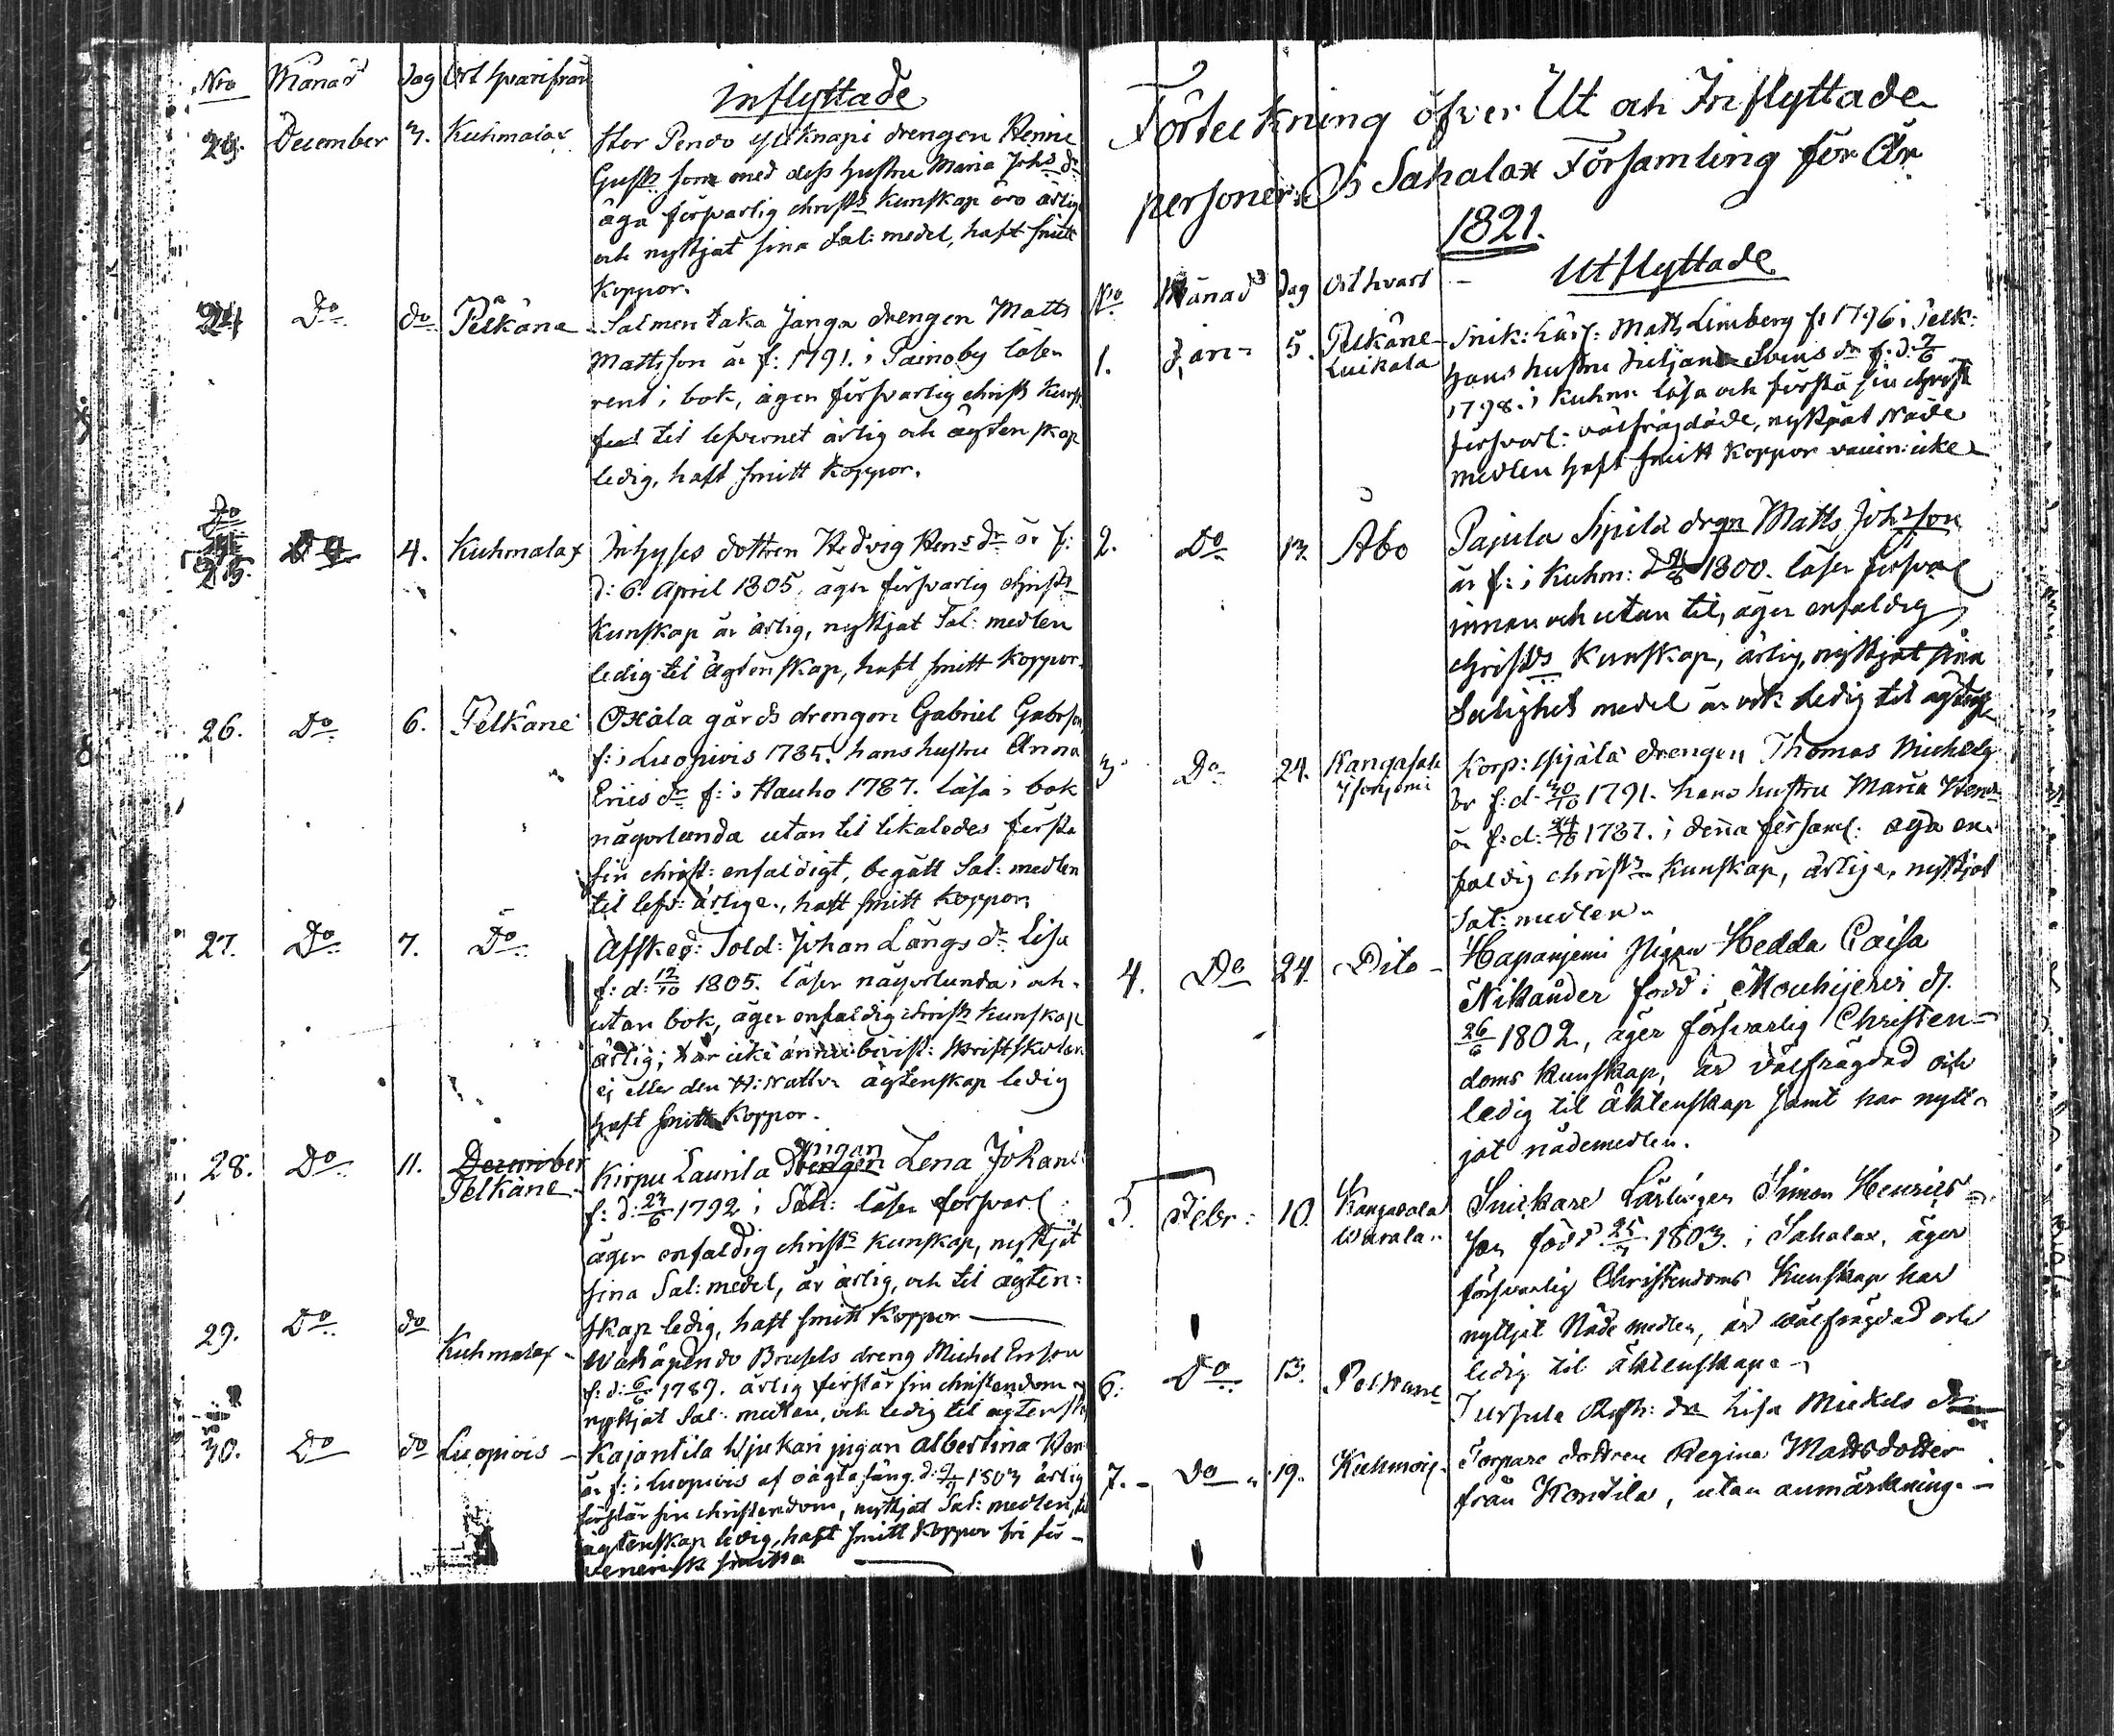 Nro Månad dag Ort hvarifrån
Inflyttade
December 3. Kuhmalax
Stor Pendo drengen Henric
som med dess hustru Maria Johs dr
äga försvarlig christs kunskap äro ärlig
och nyttjat sina Sal: medel, haft smitt
koppor.
24 Do do Pelkäne Salmentaka Janga drengen Matts
Mattsson är f: 1791. i Painoby läser
rent i bok, äger försvarlig christs
til lefvernet ärlig och ägtenskap
ledig, haft smitt koppor.
25. Do 4. Kuhmalax Inhyses dottren Hedvig Hens dr är f:
d: 6. April 1805, äger försvarlig christs
kunskap är ärlig, nyttjat Sal: medlen
ledig til ägtenskap, haft smitt koppor.
26. Do 6. Pelkäne Oxala gårds drengen Gabriel Gabrson
f: i Luopiois 1785. hans hustru Anna
Erics dr f: i Hauho 1787. läsa i bok
någorlunda utan til likaledes förstå
sin christ: enfaldigt, begått Sal: medlen
til lefv: ärlige, haft smitt koppor.
27. Do 7. Do Afsked: Sold: Johan Längs dr Lisa
f: d: 12/10 1805. läser någorlunda i och
utan bok, äger enfaldig christs kunskap
ärlig; har icke ännu bevist: skriftskolan
ej eller den H: Nattv. ägtenskap ledig
haft smitt koppor.
28. Do 11. December
Pelkäne
Kirpu Laurila drengen pigan Lena Johans
f: d: 23/6 1792 i Sah: läser försvarl:
äger enfaldig christs kunskap, nyttjat
sina Sal: medel, är ärlig, och til ägten=
skap ledig, haft smitt koppor
29. Do do Kuhmalax Brusels dreng Michel Erson
f: d: 6/6 1789. ärlig förstår sin christendom
nyttjat Sal: medlen, och ledig til ägtensk
30. Do do Luopiois Kajantila pigan Albertina
är f: i Luopiois af oägta säng. 1803 ärlig
förstår sin christendom, nyttjat Sal: medlen,
ägtenskap ledig, haft smitt koppor fri för
venerisk smitta
Förteckning öfver Ut och Inflyttade
personer i Sahalax Församling för År
1821.
Utflyttade
No Månad dag Ort hvart
1. Jan 5. Pelkäne
Luikala
Snik: Lärl: Matts Limberg f: 1796 i Pelk:
hans hustru Juliana dr f: d.
1798. i Kuhm: läsa och förstå sin christ:
försvarl: välfrägdade, nyttjat Nåde
medlen haft smitt koppor icke
2. Do 13. Åbo Pajula Sipilä drgn Matts Johsson
är f: i Kuhm: 1800. läser försvarl
innan och utan til, äger enfaldig
christs kunskap, ärlig, nyttjat sina
Salighets medel är ock ledig til
3. Do 24. Kangasala
Korp: drengen Thomas Michelss
är f: d. 30/10 1791. hans hustru Maria Hens
är f: d: 24/10 1787. i denna församl: äga en=
faldig christs kunskap, ärlige, nyttjat
Sal: medlen.
4. Do 24. Dito Hapaniemi Pigan Hedda Caisa
Nikander född i Mouhijervi d.
26/6 1802, äger försvarlig Christen=
doms kunskap, är välfrägdad och
ledig til äktenskap samt har nytt=
jat nådemedlen.
5. Febr: 10. Kangasala
Snickare Lärlingen Simon Henrics=
son född 1803. i Sahalax, äger
försvarlig Christendoms Kunskap, har
nyttjat Nådemedlen, är wälfrägdad och
ledig til äktenskap.
6. Do 13. Pelkäne Jussula dr Lisa Mickels dr
7. Do 19. Kuhmois. Torpare dottren Regina Mattsdotter
från Kontila, utan anmärkning.